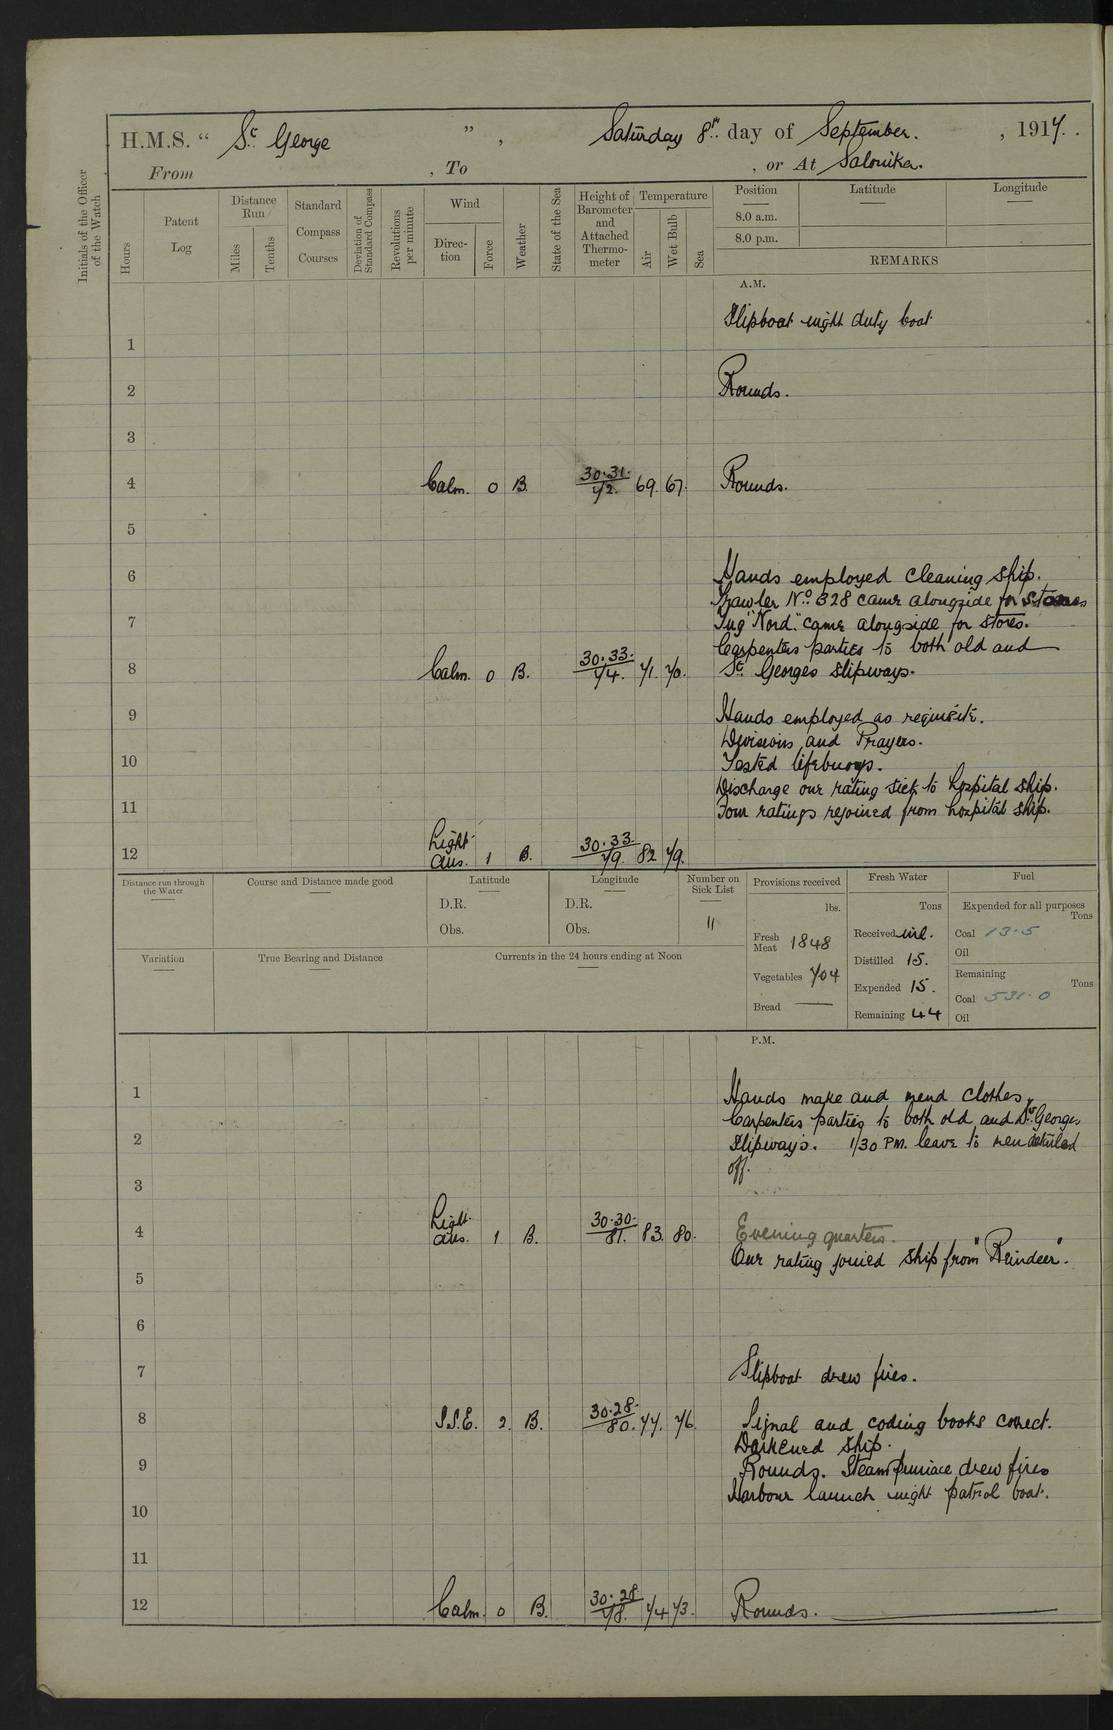 H.M.S. “ St. George ” , Saturday 8th day of September. , 1917.
From , To , or At Salonika.
Initials of the Officer of the Watch
Hours
Patent Log
Distance Run
Miles
Tenths
Standard Compass Courses
Deviation of Standard Compass
Revolutions per minute
Wind
Direction
Force
Weather
State of the Sea
Height of Barometer and Attached Thermometer
Temperature
Air
Wet Bulb
Sea
Position Latitude Longitude
8.0 a.m.
8.0 p.m.
REMARKS
A.M.
Slipboat night duty boat
1
2 Rounds.
3
4 Calm. 0 B. 30.31. 72. 69. 67. Rounds.
5
6 Hands employed cleaning ship.
Trawler No. 328 came alongside for stores
7 Tug "Nord." came alongside for stores.
Carpenters parties to both old and
8 Calm. 0 B. 30.33. 74. 71. 70. St. Georges slipways.
9 Hands employed as requisite.
Divisions and Prayers.
10 Tested lifebuoys.
Discharge one rating sick to hospital ship.
11 Four ratings rejoined from hospital ship.
12 Light airs. 1 B. 30.33. 79. 82 79.
Distance run through the Water
Course and Distance made good
Latitude
D.R.
Obs.
Longitude
D.R.
Obs.
Number on Sick List
11
Provisions received
lbs.
Fresh Meat 1848
Vegetables 704
Bread —
Fresh Water
Tons
Received nil.
Distilled 15.
Expended 15.
Remaining 44
Fuel
Expended for all purposes
Tons
Coal 13.5
Oil
Remaining
Tons
Coal 531.0
Oil
Variation
True Bearing and Distance
Currents in the 24 hours ending at Noon
P.M.
1 Hands make and mend clothes.
Carpenters parties to both old and St. Georges
2 Slipways. 1/30 PM. leave to men detailed
off.
3
4 Light airs. 1 B. 30.30. 81. 83. 80. Evening quarters.
One rating joined ship from "Reindeer".
5
6
7 Slipboat drew fires.
8 S.S.E. 2. B. 30.28. 80. 77. 76. Signal and coding books correct.
Darkened ship.
9 Rounds. Steam pinnace drew fires
Harbour launch night patrol boat.
10
11
12 Calm. 0 B. 30.28 78. 74 73. Rounds.